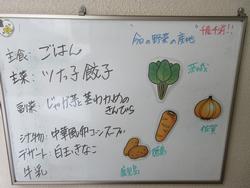 今日の野菜の産地
主食: ごはん
主菜: ツナっ子餃子
副菜: じゃが芋と茎わかめの
きんぴら
汁物: 中華風卵コーンスープ
デザート: 白玉きなこ
牛乳
茨城
佐賀
徳島
鹿児島